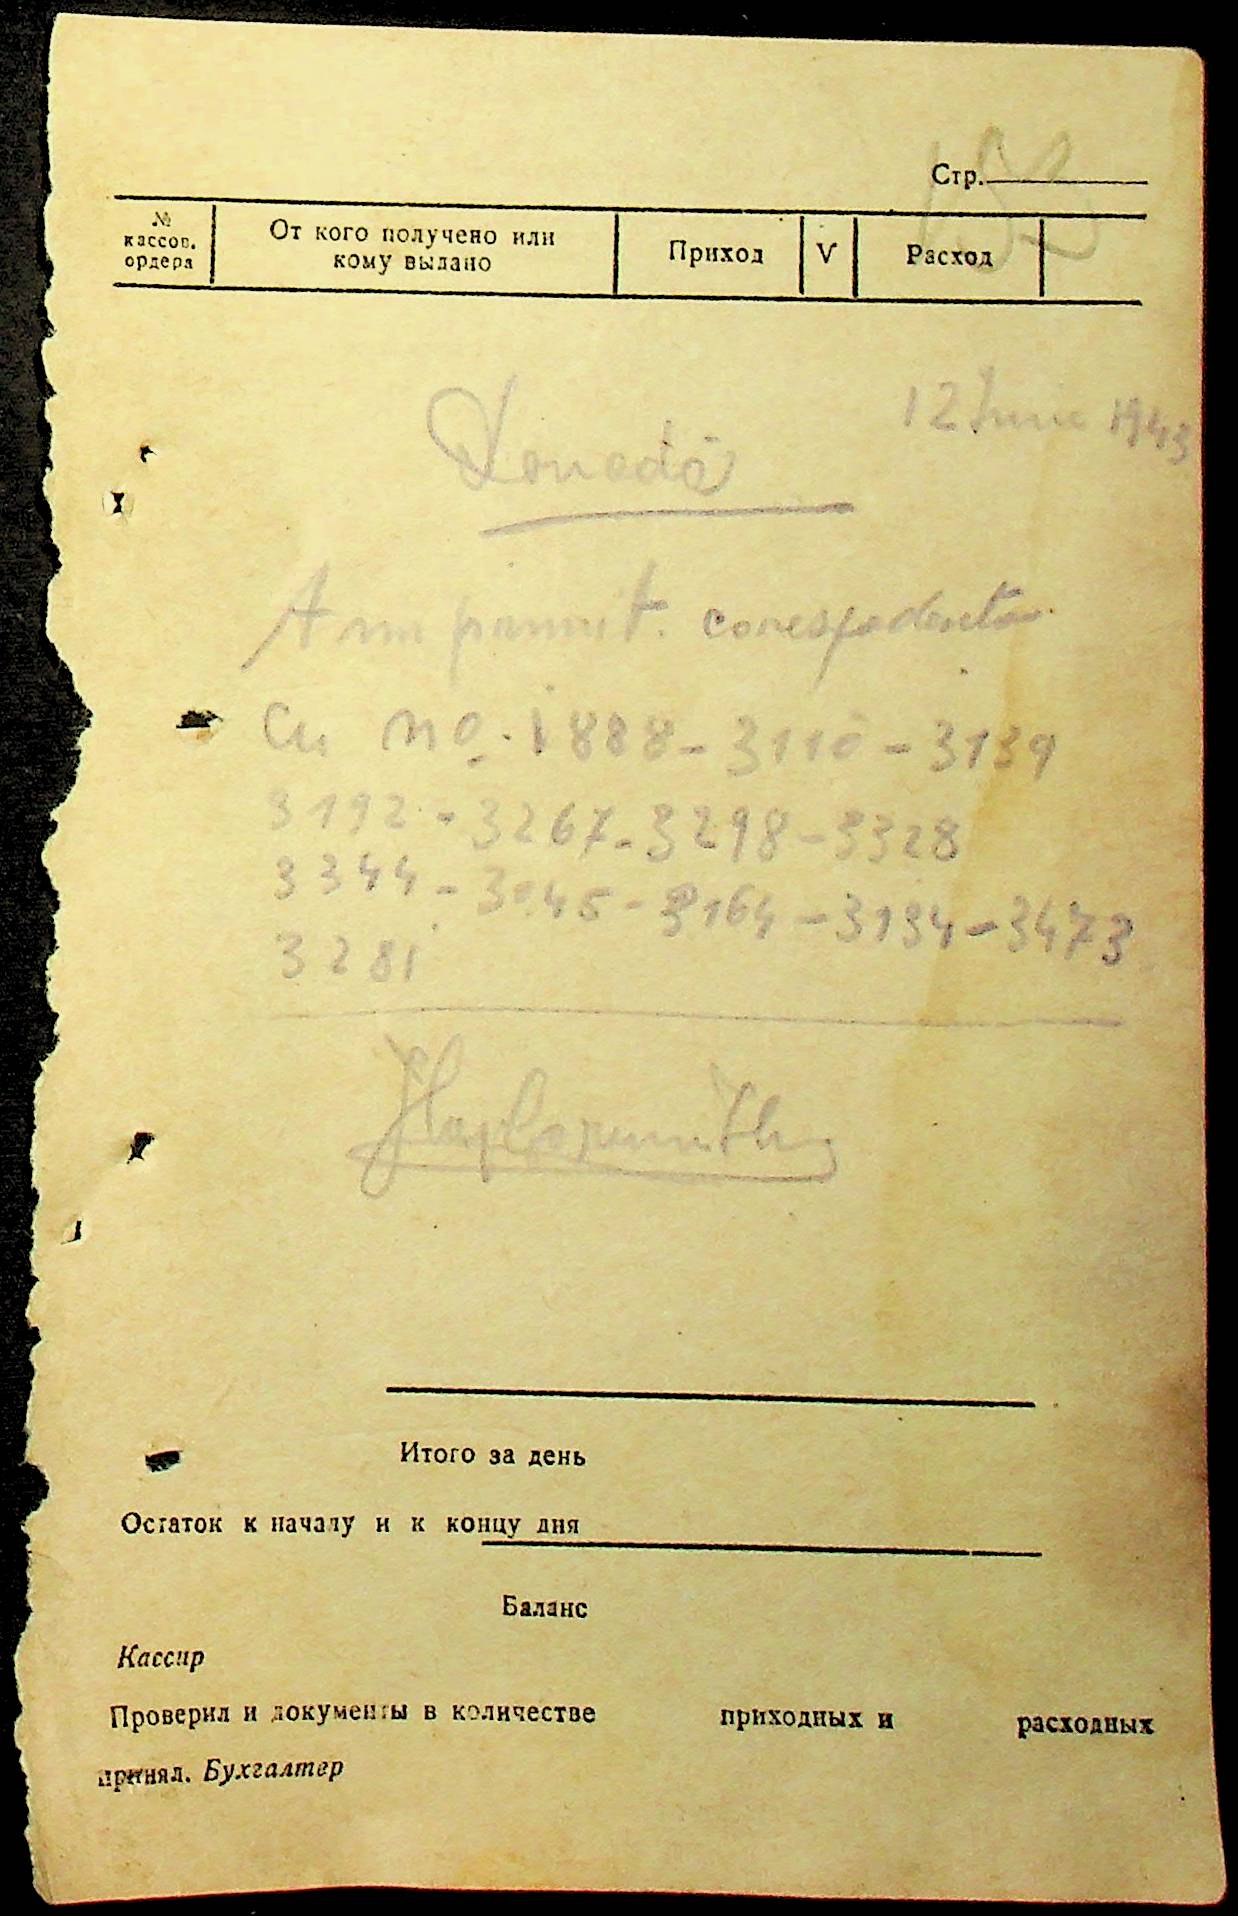 Стр.
182
№ кассов. ордера
От кого получено или кому выдано
Приход
V
Расход
12 June 1943
Dovadă
Am primit corespodenta
Cu no. 1888 - 3110 - 3139
3192 - 3267 - 3298 - 3328
3344 - 3045 - 3164 - 3134 - 3473
3281
Итого за день
Остаток к началу и к концу дня
Баланс
Кассир
Проверил и документы в количестве приходных и расходных
принял. Бухгалтер